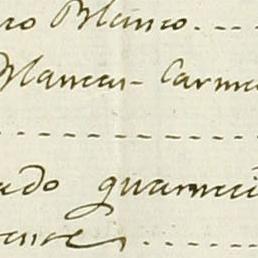 ro Blanco. - - -
Blancas - Carme
- - - - - - - - - -
ado guarneci
- - - - - -